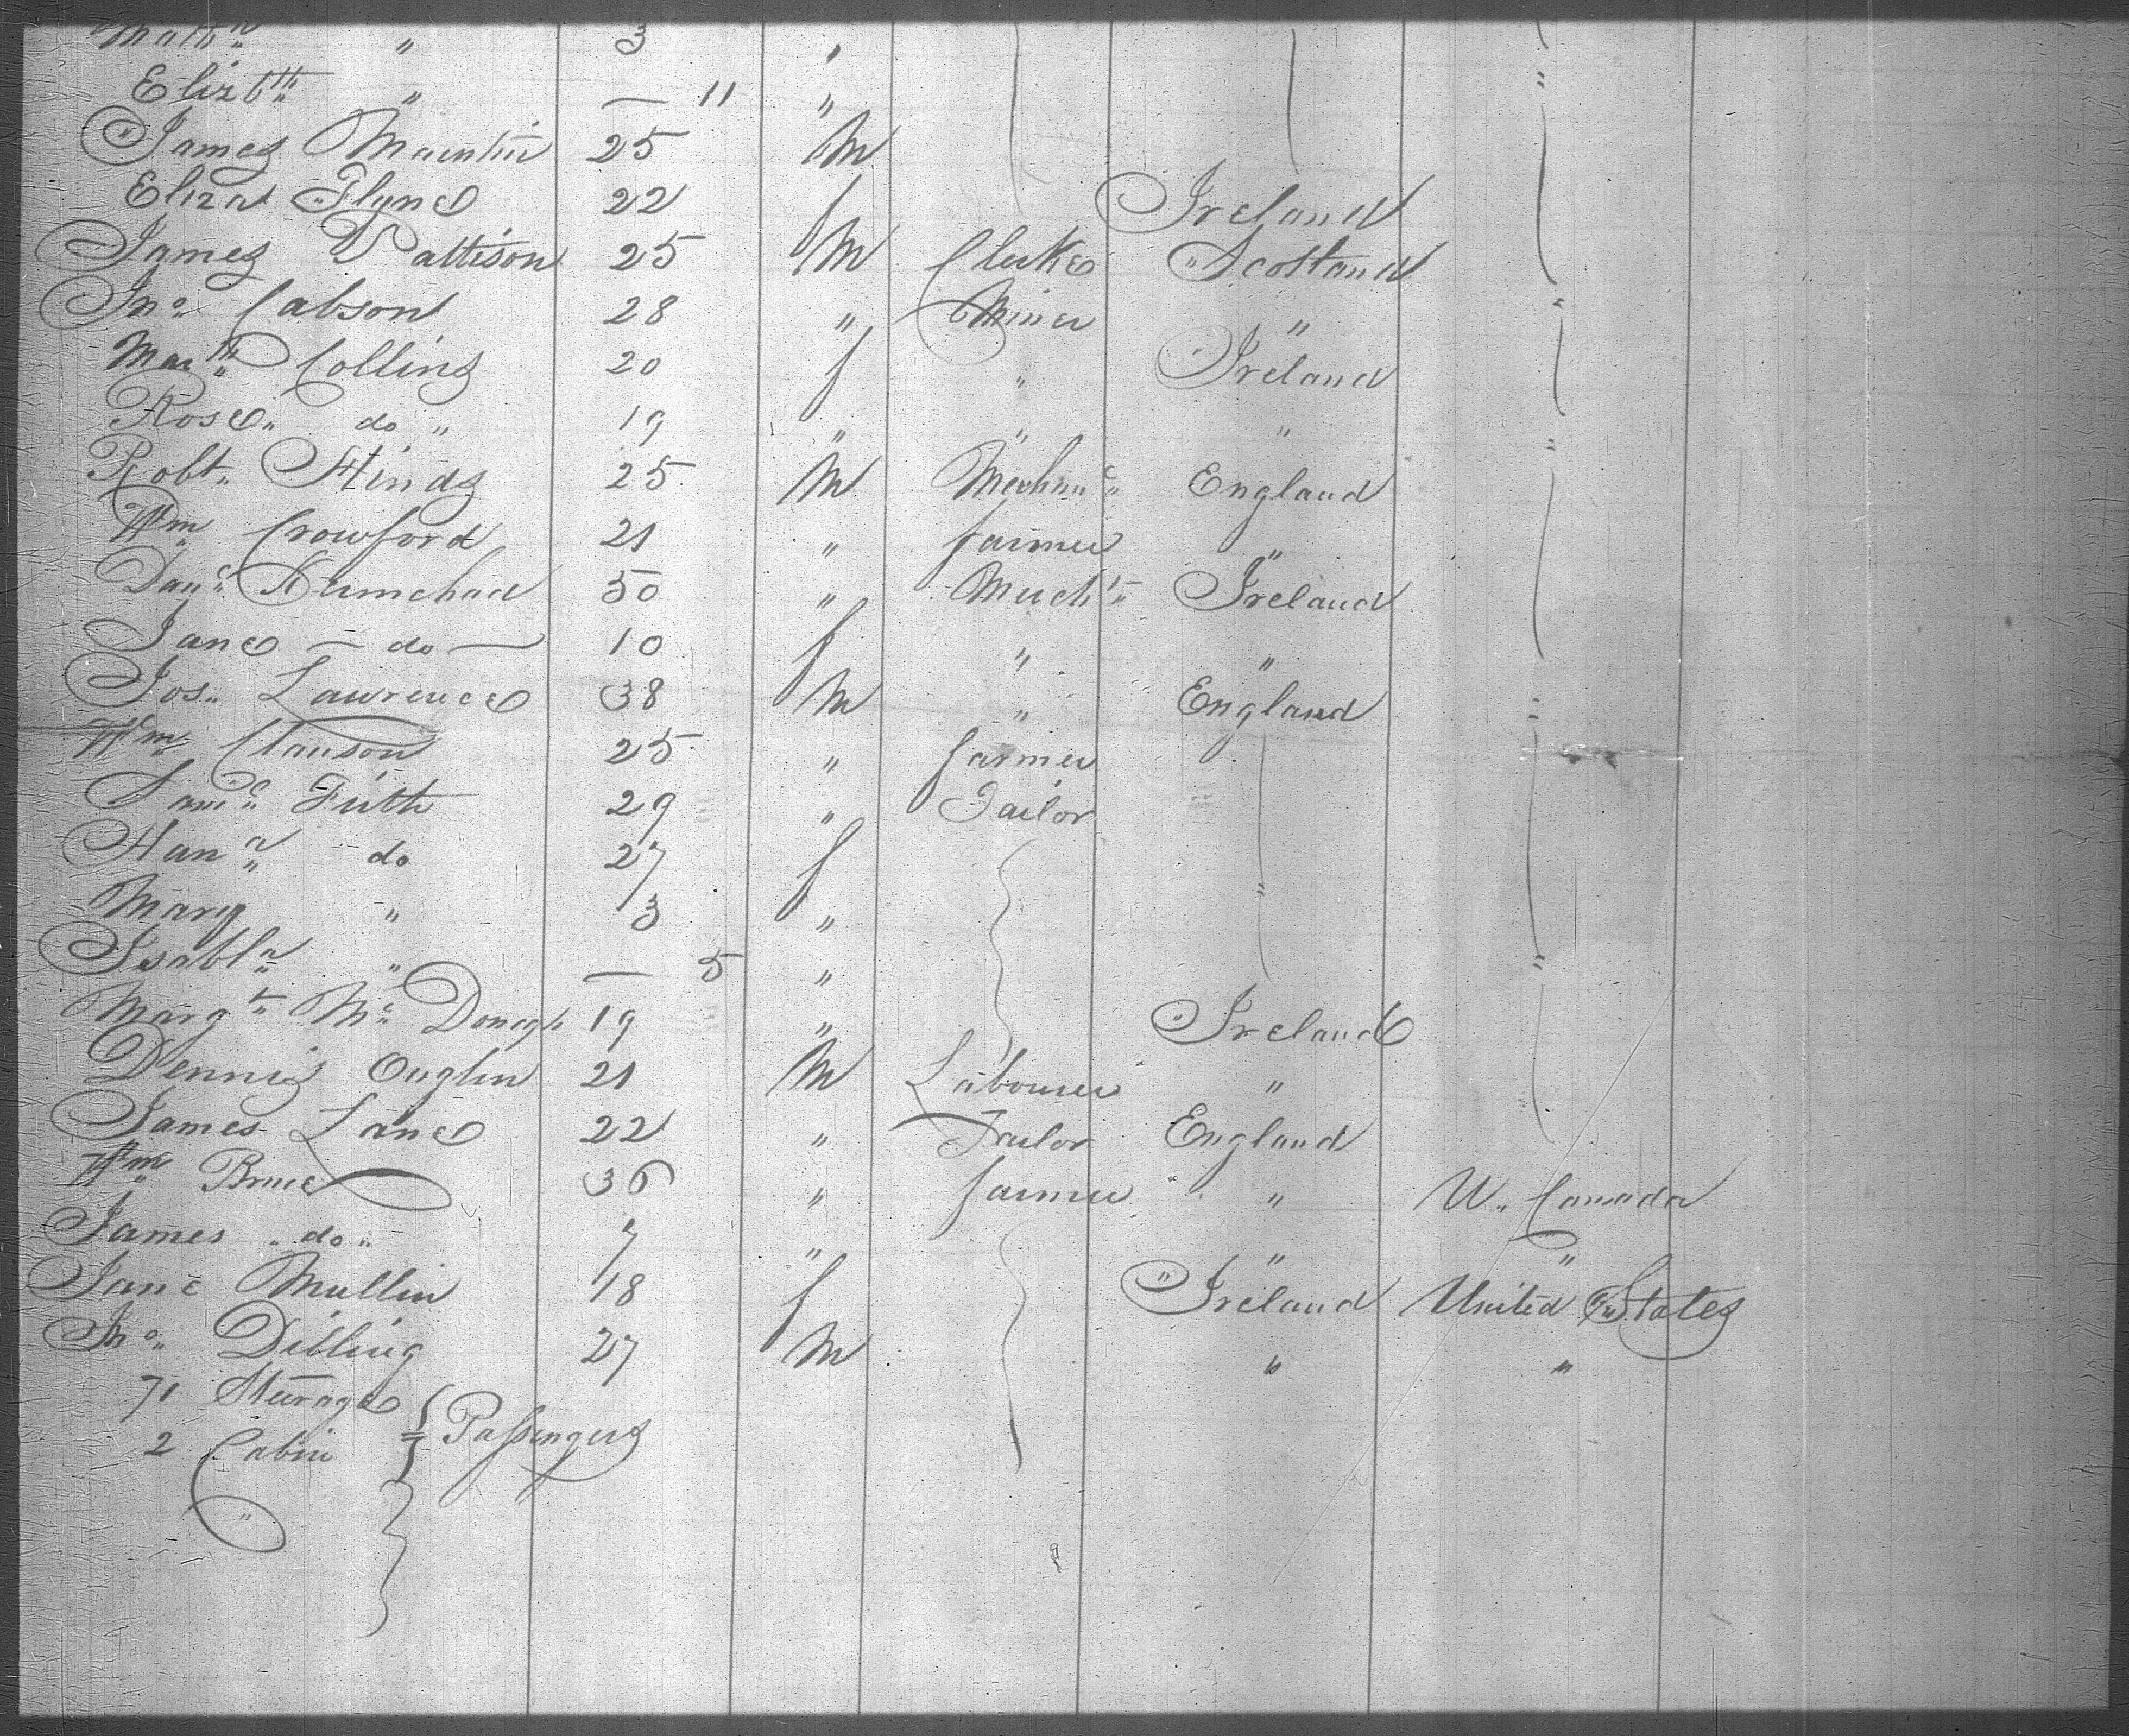 " 3 "
Elizbth " — 11 "
James 25 M
Eliza Flyne 22 f Ireland
James Pattison 25 M Clerke Scotland
Jno Cabson 28 " Miner "
Marth Collins 20 f " Ireland
Rose do " 19 " " "
Robt Hinds 25 M Mechnc England
Wm Crowford 21 " farmer "
Danl 50 " Ireland
Jane — do — 10 f " "
Jos Lawrence 38 M " England
Wm Clauson 25 " farmer
Saml Firth 29 " Tailor
Hana do 27 f
Mary " 3 "
Isabla " — 5 "
Margt Mc Donagh 19 " Ireland
Dennis 21 M Labourer "
James Lane 22 " Tailor England
Wm Bruce 36 " farmer " U. Canada
James do 7 " " "
Jane Mullin 18 f Ireland United States
Jno Dibling 27 M " "
71 Steerage } Passengers
2 Cabin